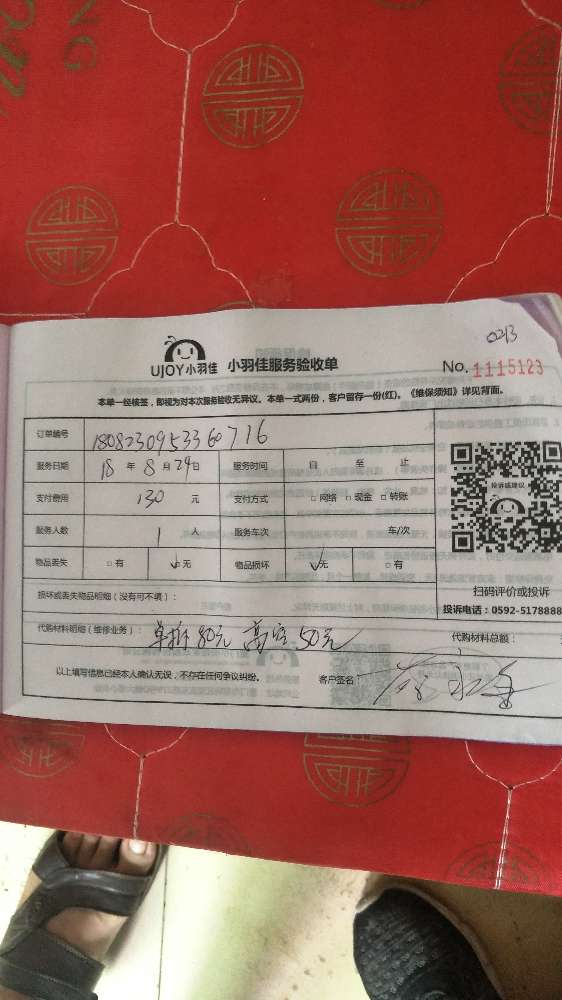 NG
0213
UJOY小羽佳 小羽佳服务验收单 No. 1115123
本单一经核签，即视为对本次服务验收无异议。本单一式两份，客户留存一份(红)。《维保须知》详见背面。
订单编号 1808230953360716
服务日期 18 年 8 月 24 日 服务时间 自 至 止
支付费用 130 元 支付方式 □网络 □现金 □转账
服务人数 1 人 服务车次 车/次
物品丢失 □有 ☑无 物品损坏 ☑无 □有
投诉或建议
扫码评价或投诉
损坏或丢失物品明细（没有可不填）：
投诉电话：0592-5178888
代购材料明细（维修业务）： 单拆80元 高空50元 代购材料总额：
以上填写信息已经本人确认无误，不存在任何争议纠纷。 客户签名：